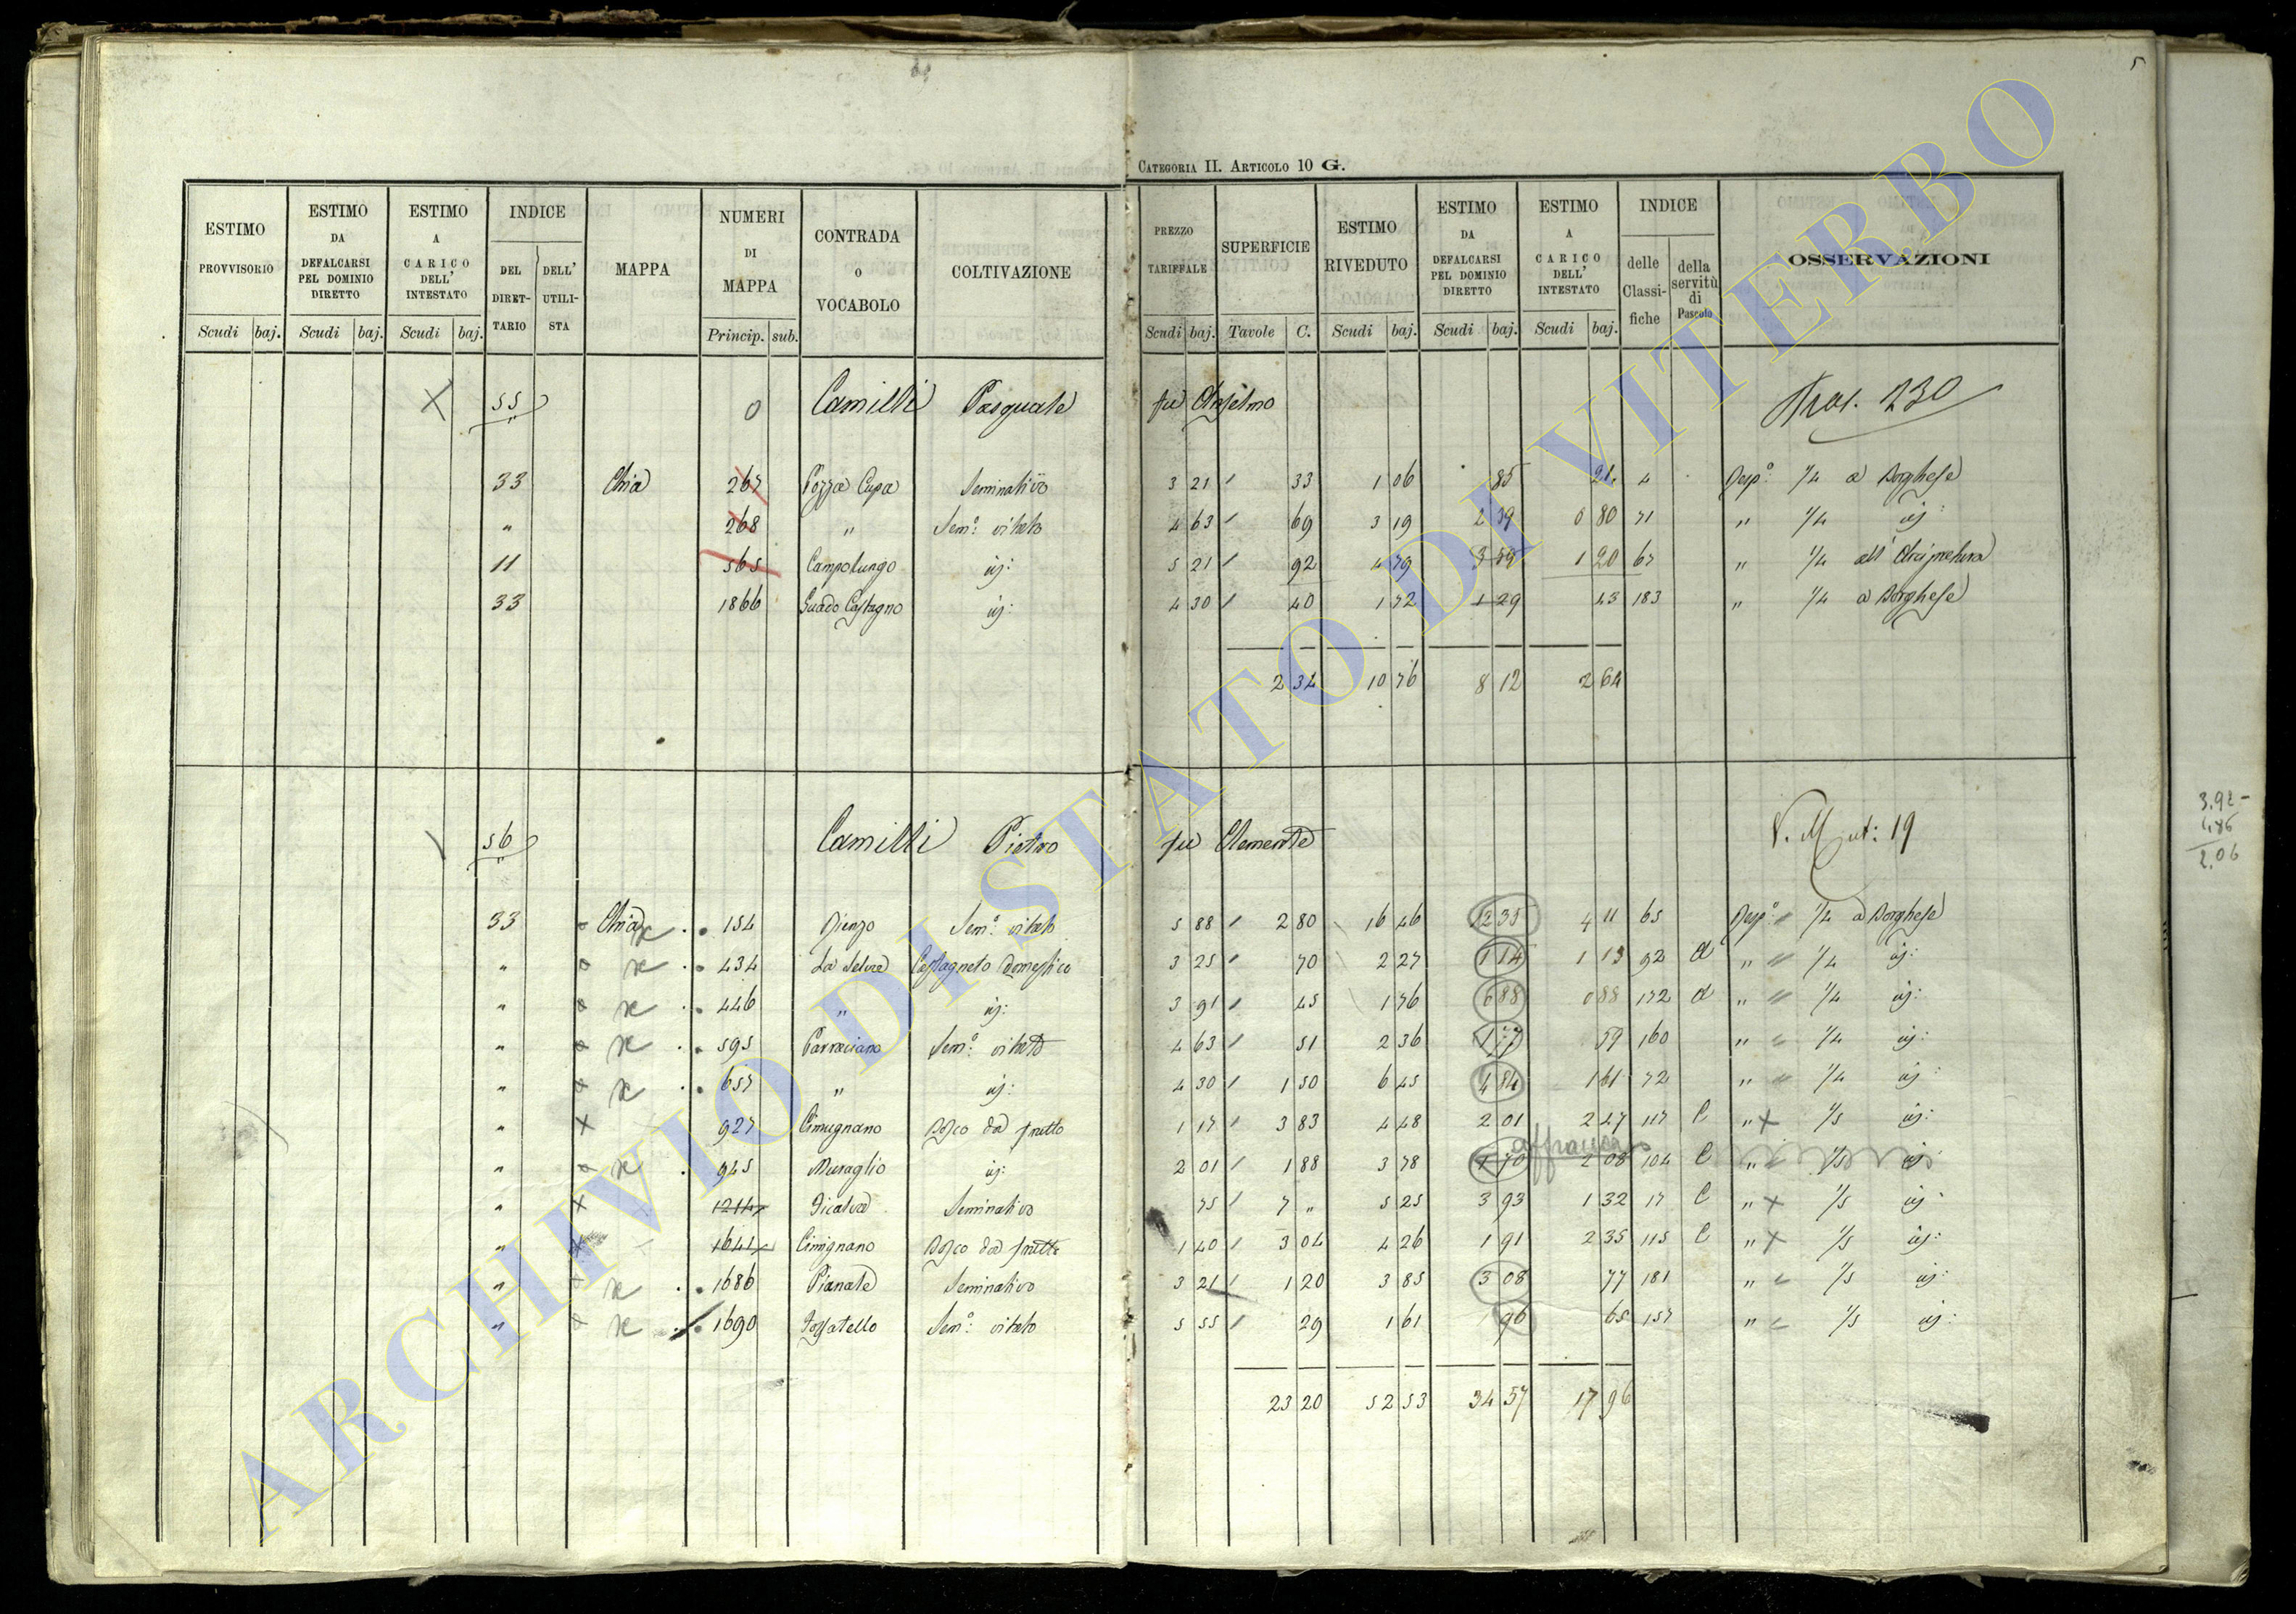 5
CATEGORIA II. ARTICOLO 10 G.
ESTIMO PROVVISORIO Scudi baj. | ESTIMO DA DEFALCARSI PEL DOMINIO DIRETTO Scudi baj. | ESTIMO A CARICO DELL' INTESTATO Scudi baj. | INDICE DEL DIRETTARIO DELL' UTILISTA | MAPPA | NUMERI DI MAPPA Princip. sub. | CONTRADA O VOCABOLO | COLTIVAZIONE | PREZZO TARIFFALE Scudi baj. | SUPERFICIE Tavole C. | ESTIMO RIVEDUTO Scudi baj. | ESTIMO DA DEFALCARSI PEL DOMINIO DIRETTO Scudi baj. | ESTIMO A CARICO DELL' INTESTATO Scudi baj. | INDICE delle Classifiche della servitù di Pascolo | OSSERVAZIONI
55 Camilli Pasquale fu Anselmo 230
33 Chia 267 Pozza Cupa Seminativo 3 21 33 1 06 85 21 4 Resp.° 1/4 a Borghese
" 268 " Sem.° vitato 4 63 69 3 19 2 39 0 80 71 " 1/4 id:
11 565 Campolungo id: 5 21 92 4 79 3 59 1 20 67 " 1/4
33 1866 Guado Castagno id: 4 30 40 1 72 1 29 43 183 " 1/4 a Borghese
2 34 10 76 8 12 2 64
56 Camilli Pietro fu Clemente V. Mut: 19
33 Chia 154 Sem.° vitato 5 88 2 80 16 46 12 35 4 11 65 Resp.° 1/4 a Borghese
" 434 La Selva Castagneto domestico 3 25 70 2 27 1 14 1 13 92 a " 1/4 id:
" 446 " id: 3 91 45 1 76 0 88 0 88 172 a " 1/4 id:
" 595 Parracciano Sem.° vitato 4 63 51 2 36 1 77 59 160 " 1/4 id:
" 657 " id: 4 30 1 50 6 45 4 84 1 61 72 " 1/4 id:
" 927 Cimignano Bosco da frutto 1 17 3 83 4 48 2 01 2 47 117 C " 1/5 id:
affrancato
" 945 Muraglio id: 2 01 1 88 3 78 1 70 2 08 104 C " 1/5 id:
" 1214 Ficaleta Seminativo 75 7 " 5 25 3 93 1 32 17 C " 1/5 id:
" 1641 Cimignano Bosco da frutto 1 40 3 04 4 26 1 91 2 35 115 C " 1/5 id:
" 1686 Pianale Seminativo 3 21 1 20 3 85 3 08 77 181 " 1/5 id:
" 1690 Fossatello Sem.° vitato 5 55 29 1 61 96 65 157 " 1/5 id:
23 20 52 53 34 57 17 96
3.92 -
1.86
2.06
ARCHIVIO DI STATO DI VITERBO